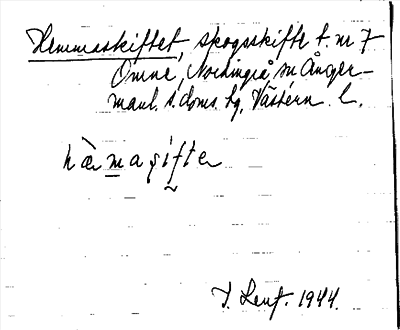 Hemmaskiftet, skogsskifte t. nr 7
Omne, Nordingrå sn Ånger-
manl. s. doms. hg. Västern. l.
hämagifte
1944.